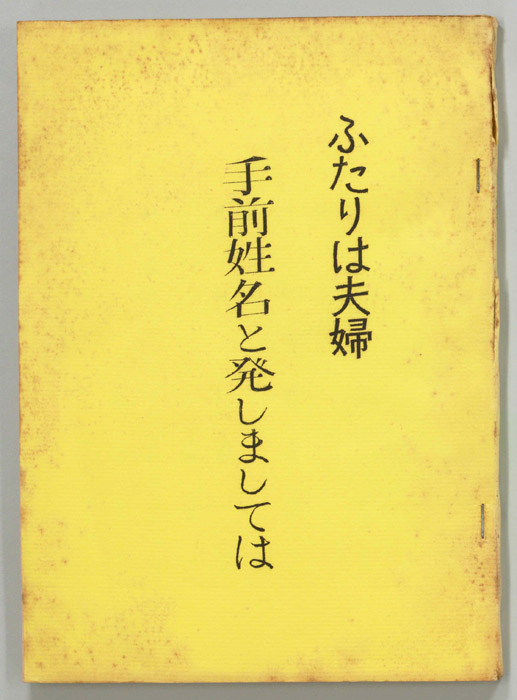 ふたりは夫婦
手前姓名と発しましては